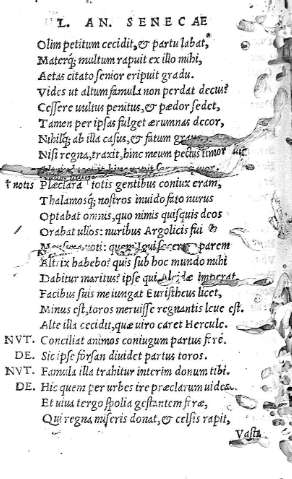 L. AN. SENECAE
Olim petitum cecidit, & partu labat,
Materq; multum rapuit ex illo mihi,
Aetas citato senior eripuit gradu.
Vides ut altum famula non perdat decus?
Cessere uultus penitus, & pædor sedet,
Tamen per ipsas fulget ærumnas decor,
Nihilq; ab illa casus, & fatum graue
Nisi regna, traxit, hinc meum pectus timor
† notis Præclara totis gentibus coniux eram,
Thalamosq; nostros inuido fato nurus
Optabat omnis, quo nimis quisquis deos
Orabat ullos: nuribus Argolicis fui &
uoti: quem parem
Altrix habebo? quis sub hoc mundo mihi
Dabitur maritus? ipse qui imperat
Facibus suis me iungat Euristheus licet,
Minus est, toros meruisse regnantis leue est.
Alte illa cecidit, quæ uiro caret Hercule.
NVT. Conciliat animos coniugum partus fere.
DE. Sic ipse forsan diuidet partus toros.
NVT. Famula illa trahitur interim donum tibi.
DE. Hic quem per urbes ire præclarum uides
Et uiua tergo spolia gestantem feræ,
Qui regna miseris donat, & celsis rapit,
Vasta